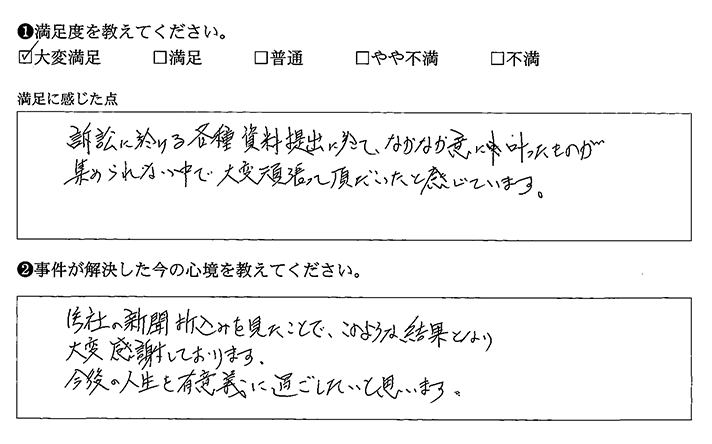 ❶満足度を教えてください。
☑大変満足 □満足 □普通 □やや不満 □不満
満足に感じた点
訴訟に於ける各種資料提出に於て、なかなか意に叶ったものが
集められない中で大変頑張って頂だいたと感じています。
❷事件が解決した今の心境を教えてください。
社の新聞折込みを見たことで、このような結果となり
大変感謝しております、
今後の人生を有意義に過ごしたいと思います。